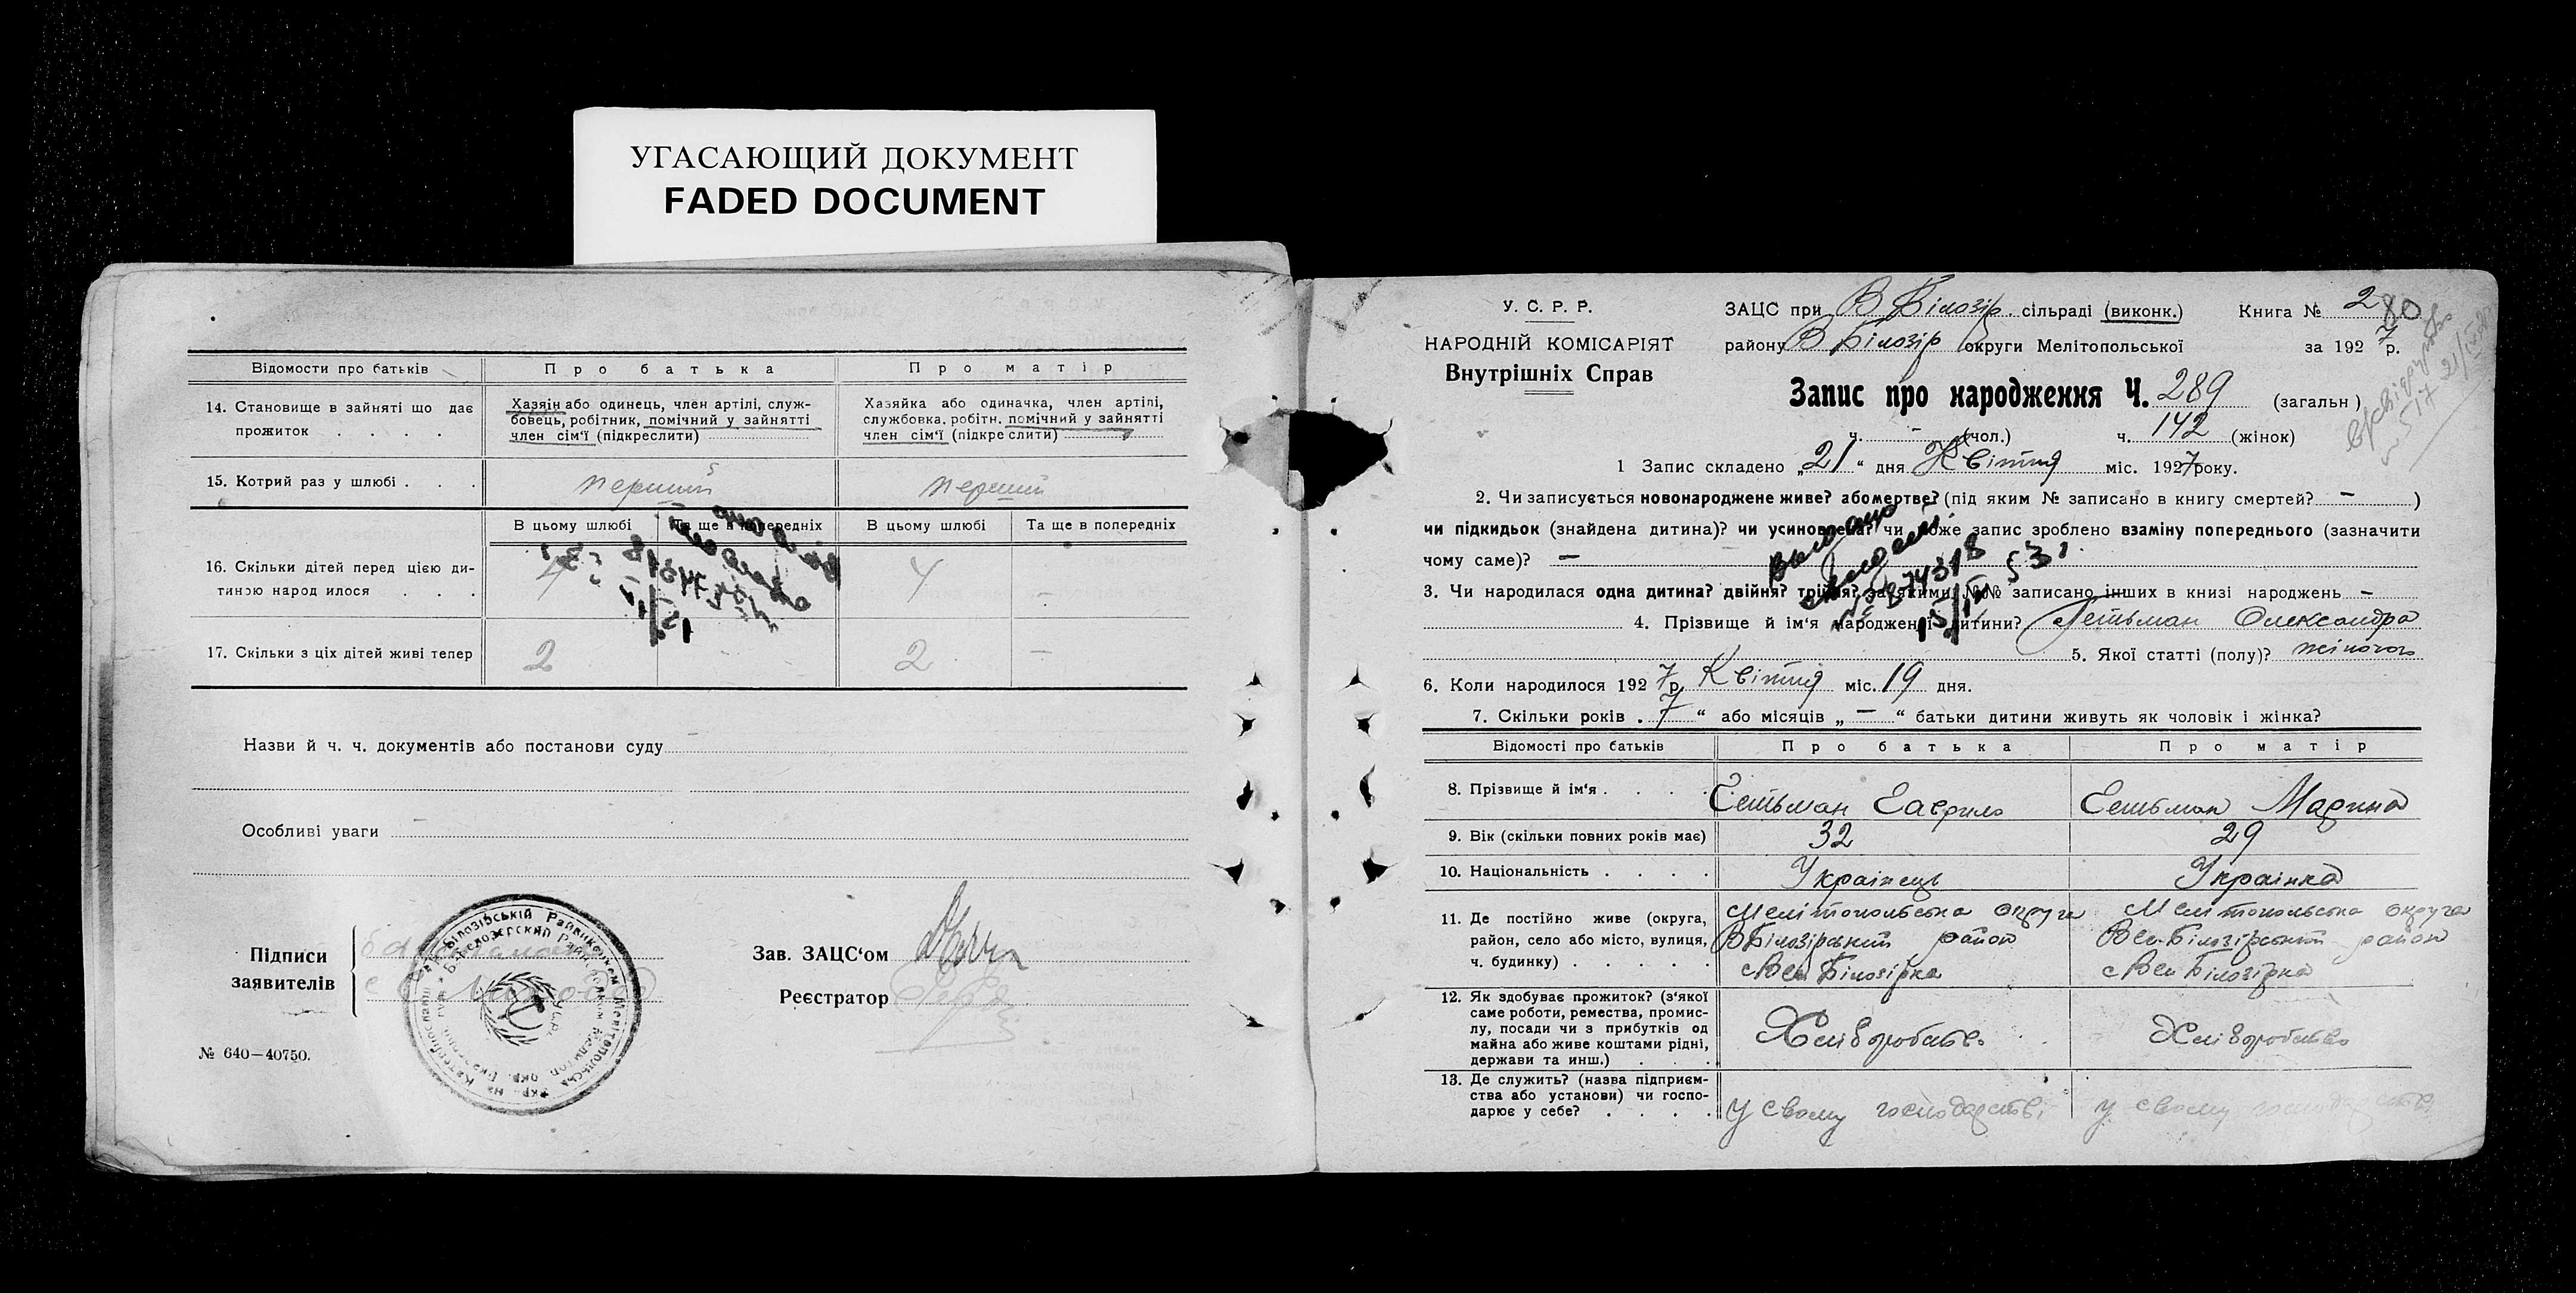 УГАСАЮЩИЙ ДОКУМЕНТ
FADED DOCUMENT
Відомости про батьків
Про батька
Про матір
14. Становище в зайняті що дає
прожиток . . . .
Хазяїн або одинець, член артілі, служ-
бовець, робітник, помічний у зайнятті
член сім'ї (підкреслити)
Хазяйка або одиначка, член артілі,
службовка, робітн. помічний у зайнятті
член сім'ї (підкреслити)
15. Котрий раз у шлюбі . . .
перший
перший
В цьому шлюбі
Та ще в попередніх
В цьому шлюбі
Та ще в попередніх
16. Скільки дітей перед цією ди-
тиною народилося . . .
4
4
–
17. Скільки з ціх дітей живі тепер
2
-
2
–
Назви й ч. ч. документів або постанови суду
Особливі уваги
Підписи
заявителів
Зав. ЗАЦС'ом
Реєстратор
№ 640—40750.
У. С. Р. Р.
НАРОДНІЙ КОМІСАРІЯТ
Внутрішніх Справ
ЗАЦС при В Білозір. сільраді (виконк.)
Книга № 2
80
району В Білозір округи Мелітопольської
за 1927 р.
Запис про народження Ч. 289 (загальн)
ч. - (чол.) ч. 142 (жінок)
1 Запис складено „21“ дня Квітня міс. 1927 року.
2. Чи записується новонароджене живе? або мертве? (під яким № записано в книгу смертей? — )
чи підкидьок (знайдена дитина)? чи усиновлена? чи може запис зроблено взаміну попереднього (зазначити
чому саме)? —
3. Чи народилася одна дитина? двійня? трійня? за якими №№ записано інших в книзі народжень –
4. Прізвище й ім'я народженої дитини? Гетьман Олександра
5. Якої статті (полу)? жіночої
6. Коли народилося 1927 р. Квітня міс. 19 дня.
7. Скільки років . 7 “ або місяців „ — “ батьки дитини живуть як чоловік і жінка?
Відомості про батьків
Про батька
Про матір
8. Прізвище й ім'я . . . .
Гетьман Гаврило
Гетьман Марина
9. Вік (скільки повних років має)
32
29
10. Національність . . . .
Українець
Українка
11. Де постійно живе (округа,
район, село або місто, вулиця,
ч. будинку) . . . . .
Мелітопольська округа
В Білозірський район
с Вел Білозірка
Мелітопольська округа
Вел-Білозірський район
с Вел Білозірка
12. Як здобуває прожиток? (з'якої
саме роботи, ремества, промис-
лу, посади чи з прибутків од
майна або живе коштами рідні,
держави та инш.) . . .
Хліборобство
Хліборобство
13. Де служить? (назва підприєм-
ства або установи) чи госпо-
дарює у себе? . . . .
у свому господарстві
у свому господарстві